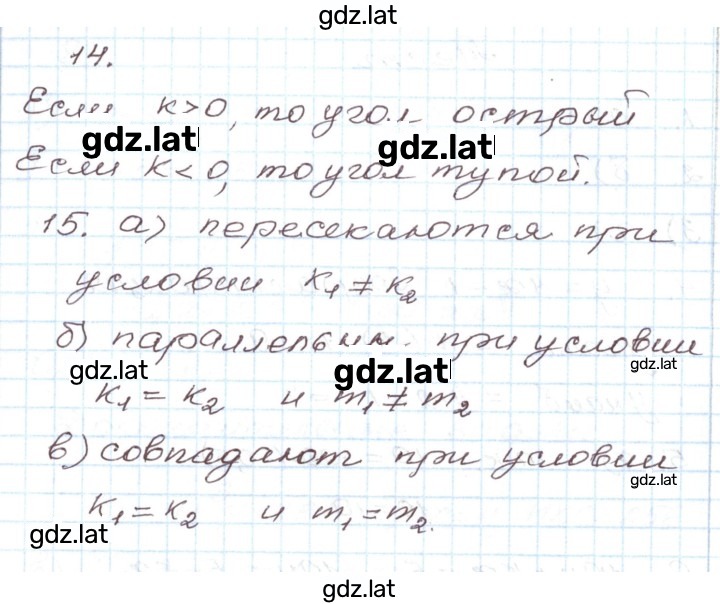 gdz.lat
14.
Если k>0, то угол острый
gdz.lat gdz.lat
Если k<0, то угол тупой.
15. а) пересекаются при
условии k₁ ≠ k₂
б) параллельны при условии
gdz.lat gdz.lat gdz.lat
k₁ = k₂ и m₁ ≠ m₂
в) совпадают при условии
gdz.lat
k₁ = k₂ и m₁ = m₂.
gdz.lat
gdz.lat